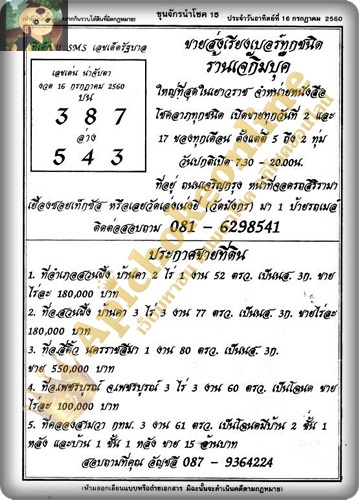 ขุนจักรนำโชค 15 ประจำวันอาทิตย์ที่ 16 กรกฎาคม 2560
SMS เลขเด็ดรัฐบาล
เลขเด่น น่าจับตา
งวด 16 กรกฎาคม 2560
บน
3 8 7
ล่าง
5 4 3
ขายส่งเรียงเบอร์ทุกชนิด
ร้านเจ๊กิมบุ๊ค
ใหญ่ที่สุดในเยาวราช จำหน่ายหนังสือ
โชคลาภทุกชนิด เปิดขายทุกวันที่ 2 และ
17 ของทุกเดือน ตั้งแต่ตี 5 ถึง 2 ทุ่ม
วันปกติเปิด 7.30 - 20.00น.
ที่อยู่ ถนนเจริญกรุง หน้าที่จอดรถสิริรามา
เยื้องซอยเท็กซัส หรือเลยวัดเล่งเน่ยยี่ (วัดมังกร) มา 1 ป้ายรถเมล์
ติดต่อสอบถาม 081 - 6298541
ประกาศขายที่ดิน
1. ที่อำเภอสวนผึ้ง บ้านคา 2 ไร่ 1 งาน 52 ตรว. เป็นนส. 3ก. ขาย
ไร่ละ 180,000 บาท
2. ที่อ.สวนผึ้ง บ้านคา 3 ไร่ 3 งาน 77 ตรว. เป็นนส. 3ก. ขายไร่ละ
180,000 บาท
3. ที่อ.สีคิ้ว นครราชสีมา 1 งาน 80 ตรว. เป็นนส. 3ก.
ขาย 550,000 บาท
4. ที่อ.เพชรบูรณ์ จ.เพชรบูรณ์ 3 ไร่ 3 งาน 60 ตรว. เป็นโฉนด ขาย
ไร่ละ 100,000 บาท
5. ที่คลองสามวา กทม. 3 งาน 61 ตรว. เป็นโฉนดมีบ้าน 2 ชั้น 1
หลัง และบ้าน 1 ชั้น 1 หลัง ขาย 15 ล้านบาท
สอบถามที่คุณ อัญชลี 087 - 9364224
(ห้ามลอกเลียนแบบหรือถ่ายเอกสาร มิฉะนั้นจะดำเนินคดีตามกฎหมาย)
Apichokeonline